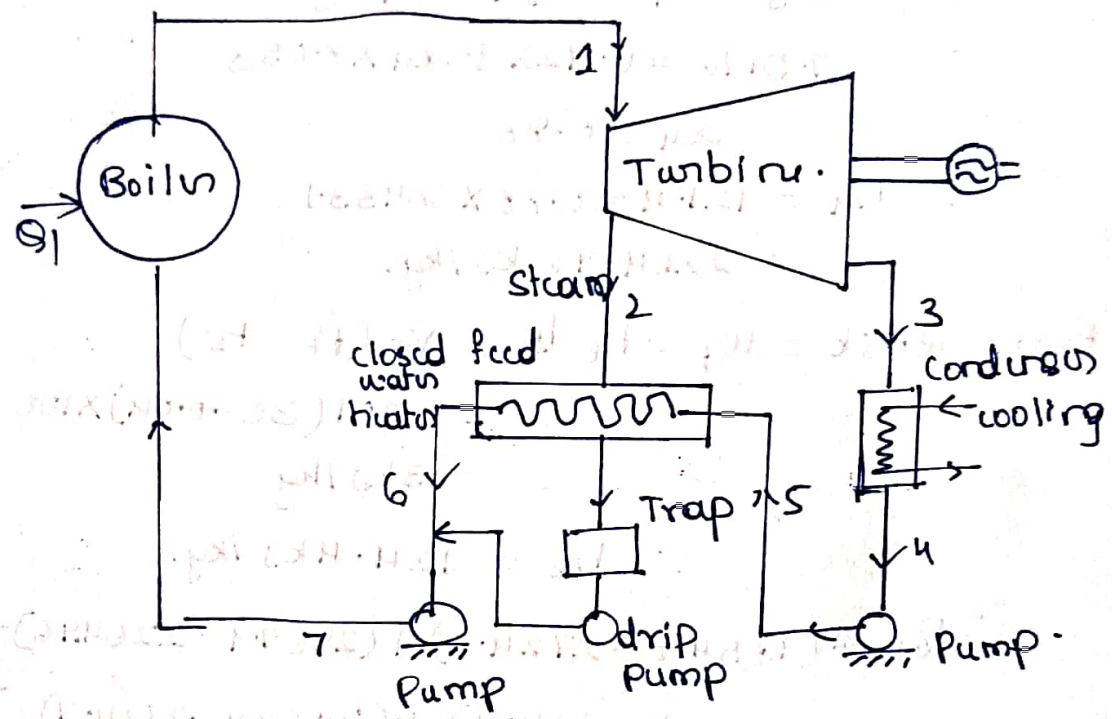 1
Boiler
Turbine.
Q1
Steam
2
3
closed feed
water
heater
Condenser
cooling
6
Trap
5
4
7
drip
Pump
Pump
Pump.